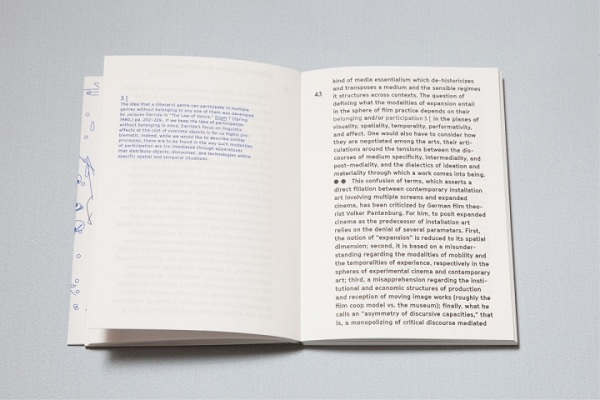 3 [
The idea that a (literary) genre can participate in multiple
genres without belonging to any one of them was developed
by Jacques Derrida in "The Law of Genre," Glyph 7 (Spring
1980,) pp. 202–229. If we keep the idea of participation
without belonging in mind, Derrida's focus on linguistic
effects at the cost of concrete objects to be us highly pro-
blematic. Indeed, while we would like to describe similar
processes, these are to be found in the way such modalities
of participation are live mediated through assemblages
that distribute objects, discourses, and technologies within
specific spatial and temporal situations.
43
kind of media essentialism which de-historicizes
and transposes a medium and the sensible regimes
it structures across contexts. The question of
defining what the modalities of expansion entail
in the sphere of film practice depends on their
belonging and/or participation 3 [ in the planes of
visuality, spatiality, temporality, performativity,
and affect. One would also have to consider how
they are negotiated among the arts, their arti-
culations around the tensions between the dis-
courses of medium specificity, intermediality, and
post-mediality, and the dialectics of ideation and
materiality through which a work comes into being.
●● This confusion of terms, which asserts a
direct filiation between contemporary installation
art involving multiple screens and expanded
cinema, has been criticized by German film theo-
rist Volker Pantenburg. For him, to posit expanded
cinema as the predecessor of installation art
relies on the denial of several parameters. First,
the notion of "expansion" is reduced to its spatial
dimension; second, it is based on a misunder-
standing regarding the modalities of mobility and
the temporalities of experience, respectively in the
spheres of experimental cinema and contemporary
art; third, a misapprehension regarding the insti-
tutional and economic structures of production
and reception of moving image works (roughly the
film coop model vs. the museum); finally, what he
calls an "asymmetry of discursive capacities," that
is, a monopolizing of critical discourse mediated